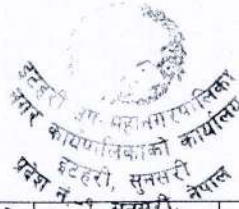 इटहरी उप-महानगरपालिका
नगर कार्यपालिकाको कार्यालय
इटहरी, सुनसरी
प्रदेश नं. १ सुनसरी, नेपाल